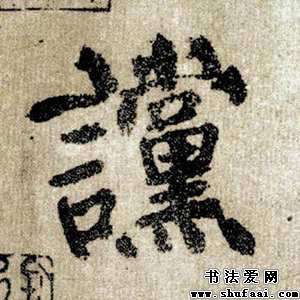 讜
书法爱网
www.shufaai.com